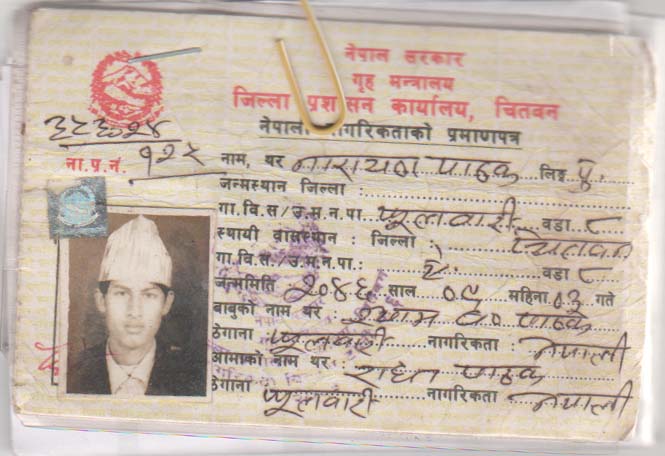 नेपाल सरकार
गृह मन्त्रालय
जिल्ला प्रशासन कार्यालय, चितवन
नेपाली नागरिकताको प्रमाणपत्र
ना.प्र.नं. १२५
नाम, थर नारायण पाठक लिङ्ग पु.
जन्मस्थान जिल्ला :
गा.वि.स/उ.म.न.पा. फूलबारी वडा ८
स्थायी बासस्थान : जिल्ला : चितवन
गा.वि.स/उ.म.न.पा.: ऐ. वडा ८
जन्ममिति : २०४६ साल ०८ महिना ०३ गते
बाबुको नाम थर श्याम ब० पाठक
ठेगाना फूलबारी नागरिकता : नेपाली
आमाको नाम थर : राधा पाठक
ठेगाना फूलबारी नागरिकता नेपाली